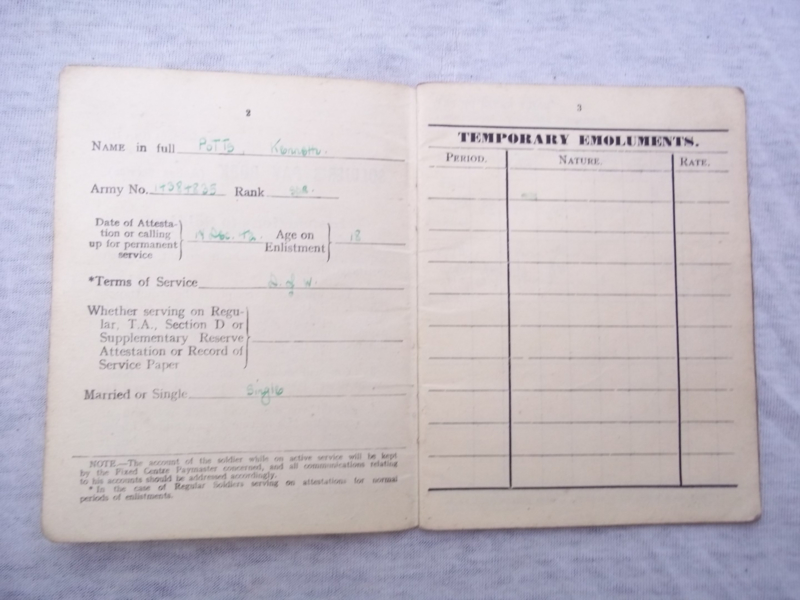 2
NAME in full POTTS, Kenneth.
Army No. Rank
Date of Attesta-
tion or calling
up for permanent
service
Age on
Enlistment
18
*Terms of Service D. of W.
Whether serving on Regu-
lar, T.A., Section D or
Supplementary Reserve
Attestation or Record of
Service Paper
Married or Single Single
NOTE.—The account of the soldier while on active service will be kept
by the Fixed Centre Paymaster concerned, and all communications relating
to his accounts should be addressed accordingly.
* In the case of Regular Soldiers serving on attestations for normal
periods of enlistments.
3
TEMPORARY EMOLUMENTS.
PERIOD. NATURE. RATE.